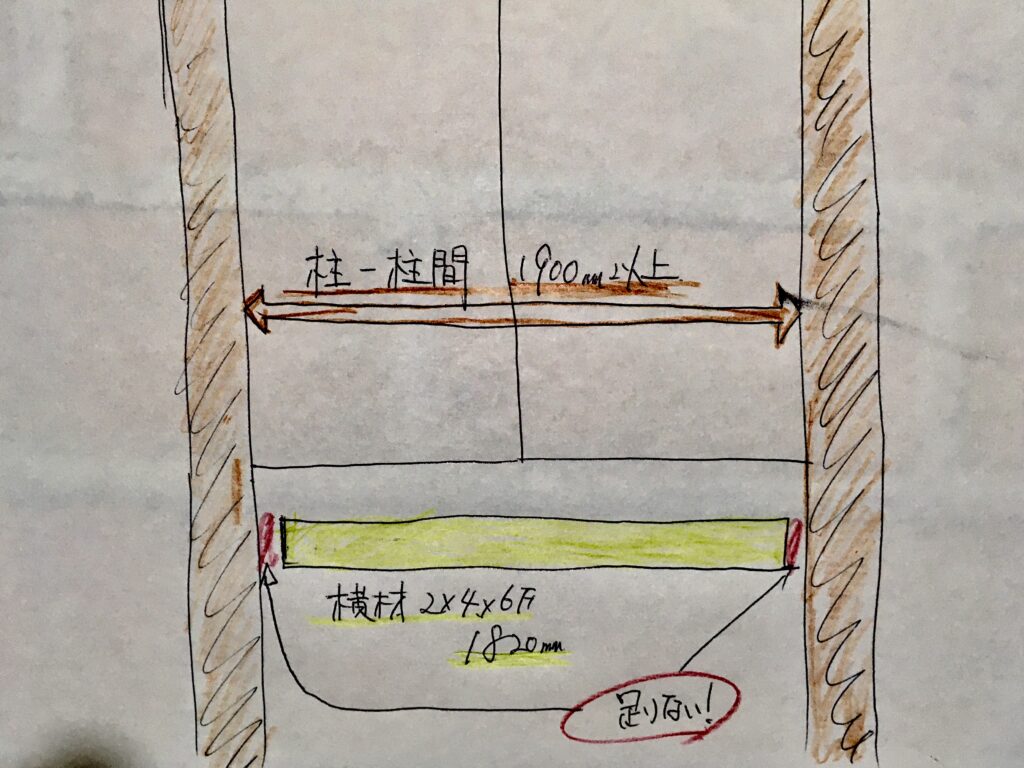 柱－柱間 1900mm以上
横材 2×4×6F
1820mm
足りない!